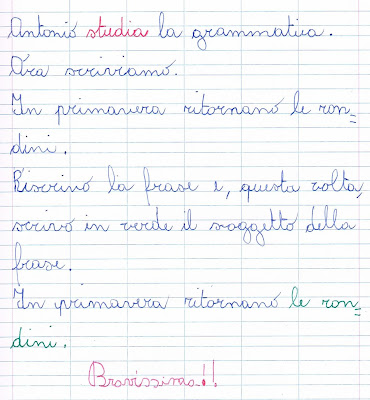 Antonio studia la grammatica.
Ora scriviamo.
In primavera ritornano le ron=
dini.
Riscrivo la frase e, questa volta,
scrivo in verde il soggetto della
frase.
In primavera ritornano le ron=
dini.
Bravissima!!